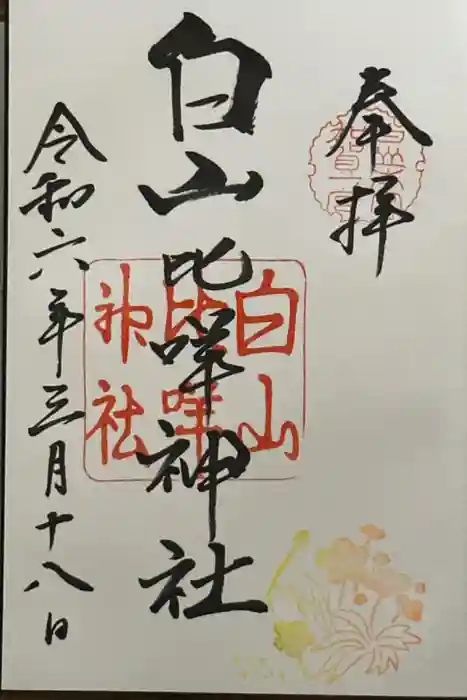 奉拝
白山比咩神社
白山
比咩
神社
令和六年三月十八日